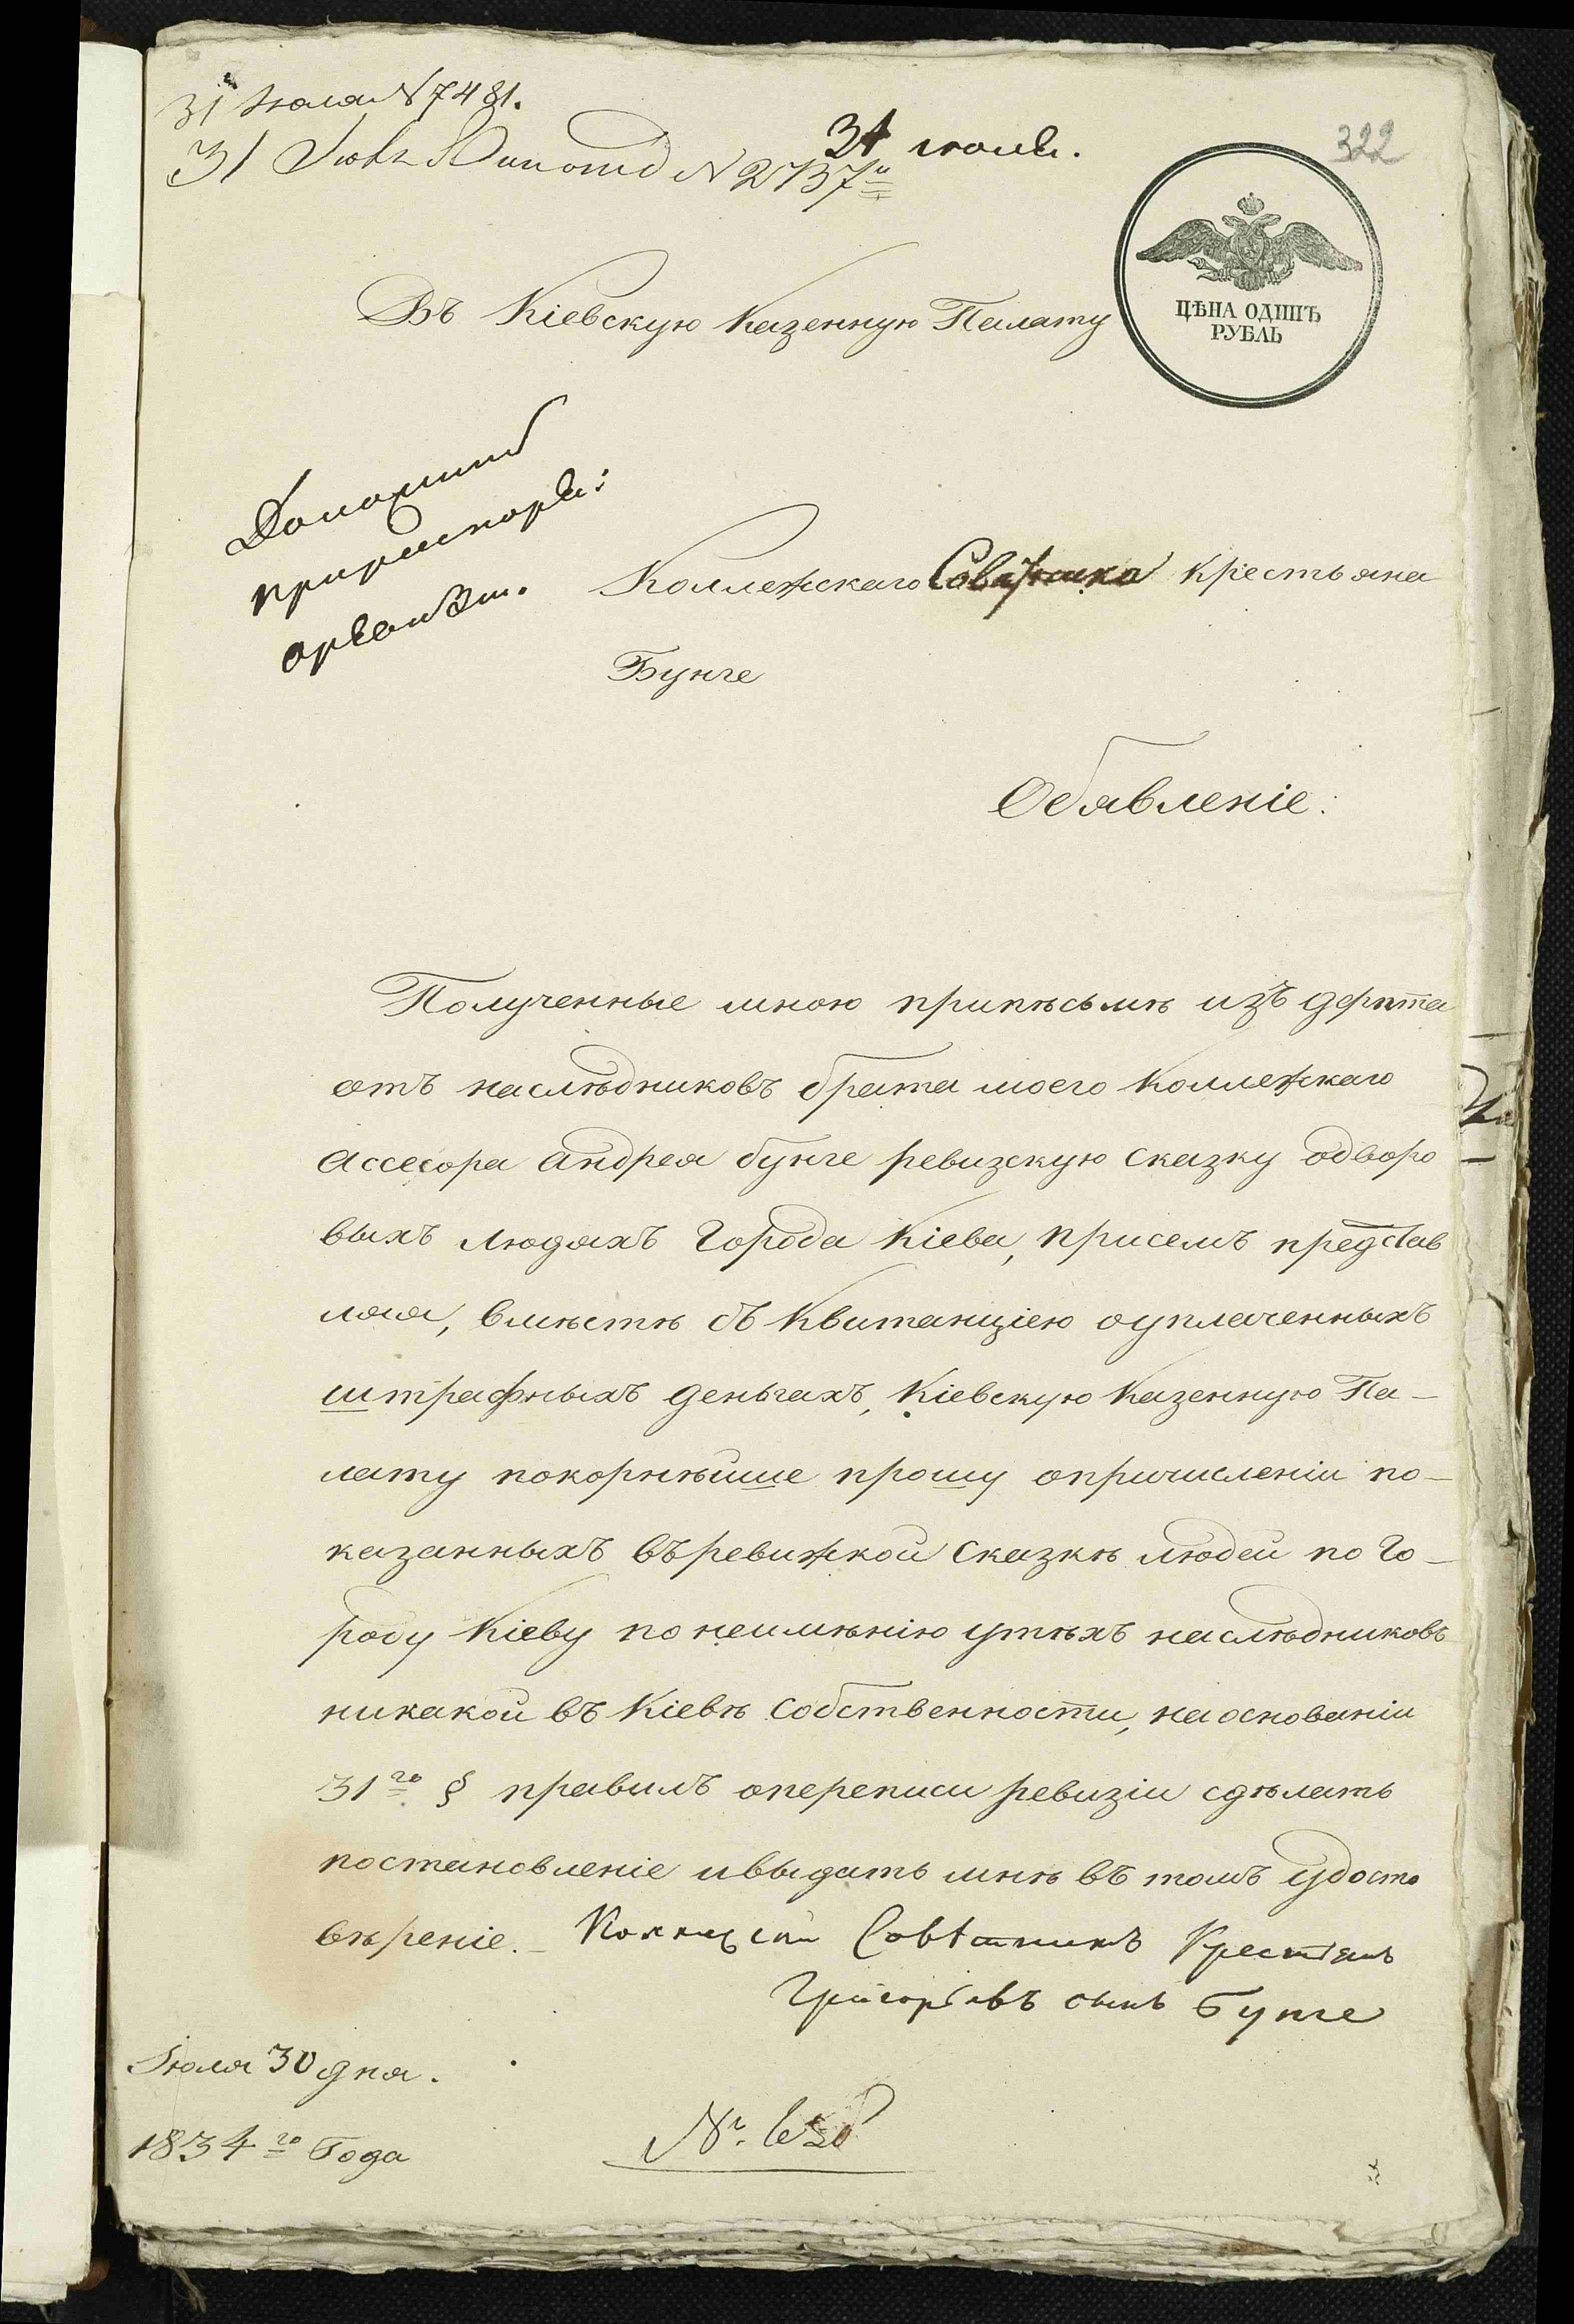 31 Июля N 7481.
31 N 2737
31 июля.
322
ЦѢНА ОДИНЪ
РУБЛЬ
Въ Кіевскую Казенную Палату
Доложить
Коллежскаго Советника Крестьяна
Бунге
Обявленіе:
Полученные мною припѣсьмѣ изъ дерпта
отъ наслѣдниковъ брата моего Коллежкаго
Ассесора Андрея бунге ревизскую сказку одворо
выхъ людяхъ города Кіева, присемъ представ
ляя, вмѣстѣ съ Квитанціею оуплаченныхъ
штрафныхъ деньгахъ, Кіевскую Казенную Па-
лату покорнѣйше прошу опричисленіи по-
казанныхъ въревижкой сказкѣ людей по Го-
роду Кіеву по неимѣнію утѣхъ наслѣдниковъ
никакой въ Кіевѣ собственности, наоснованіи
31го § правилъ опереписи ревизіи сдѣлать
постановленіе ивыдать мнѣ въ томъ удосто
вѣреніе. Коллежскій Совѣтникъ Крестьянъ
Григорьевъ сынъ Бунге
Іюля 30 дня.
1834го Года